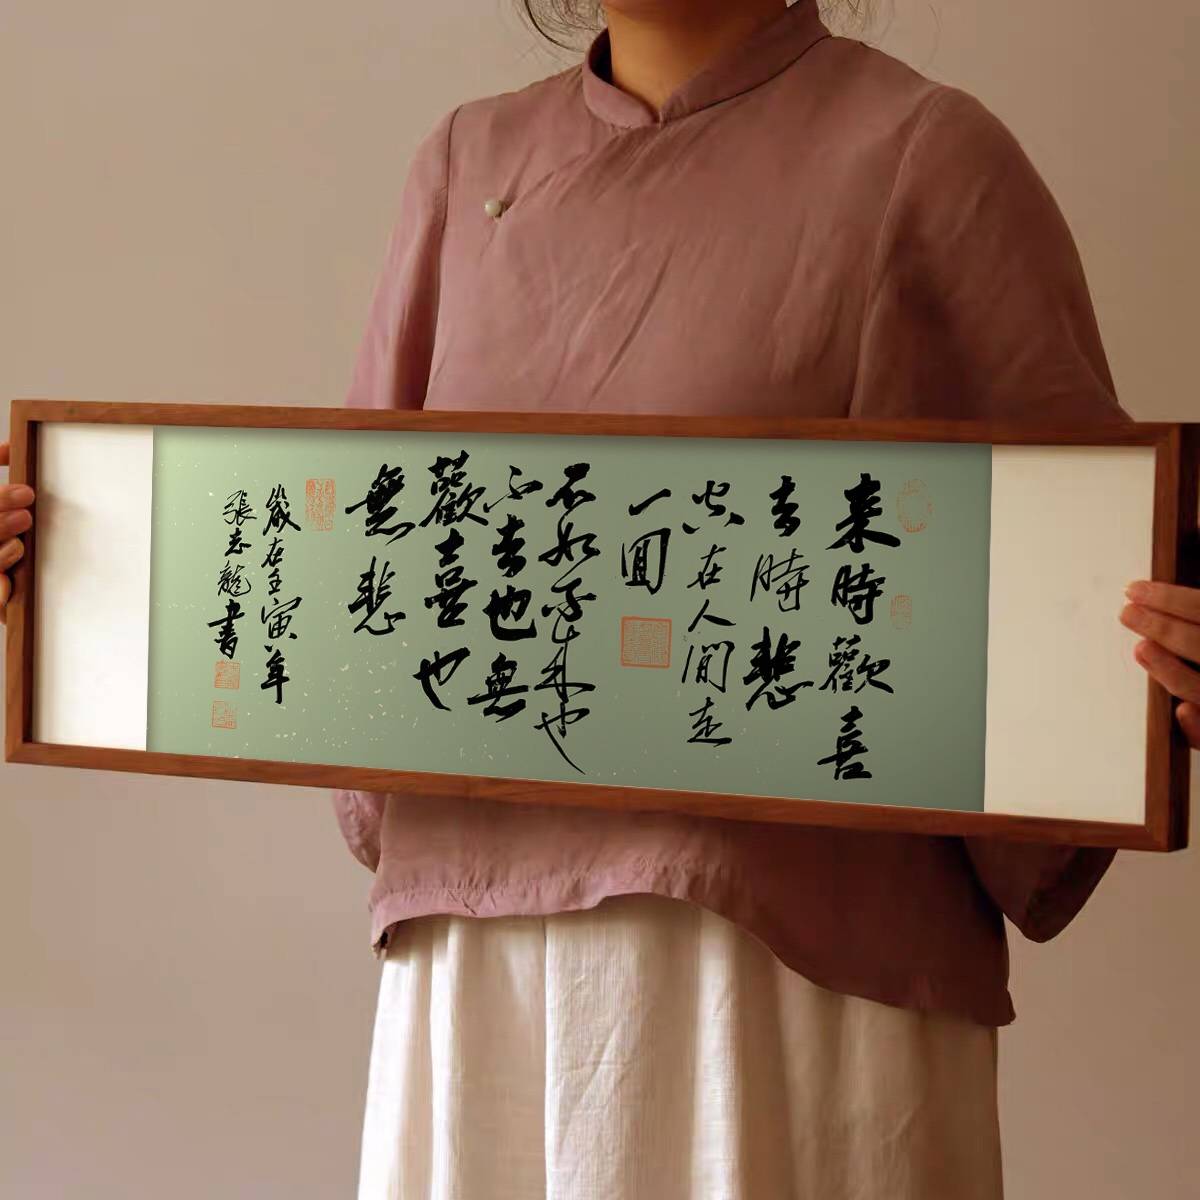 来時歡喜
去時悲
空在人間走
一囬
不如不来也
不去也無
歡喜也
無悲
歲在壬寅年
張志龍書